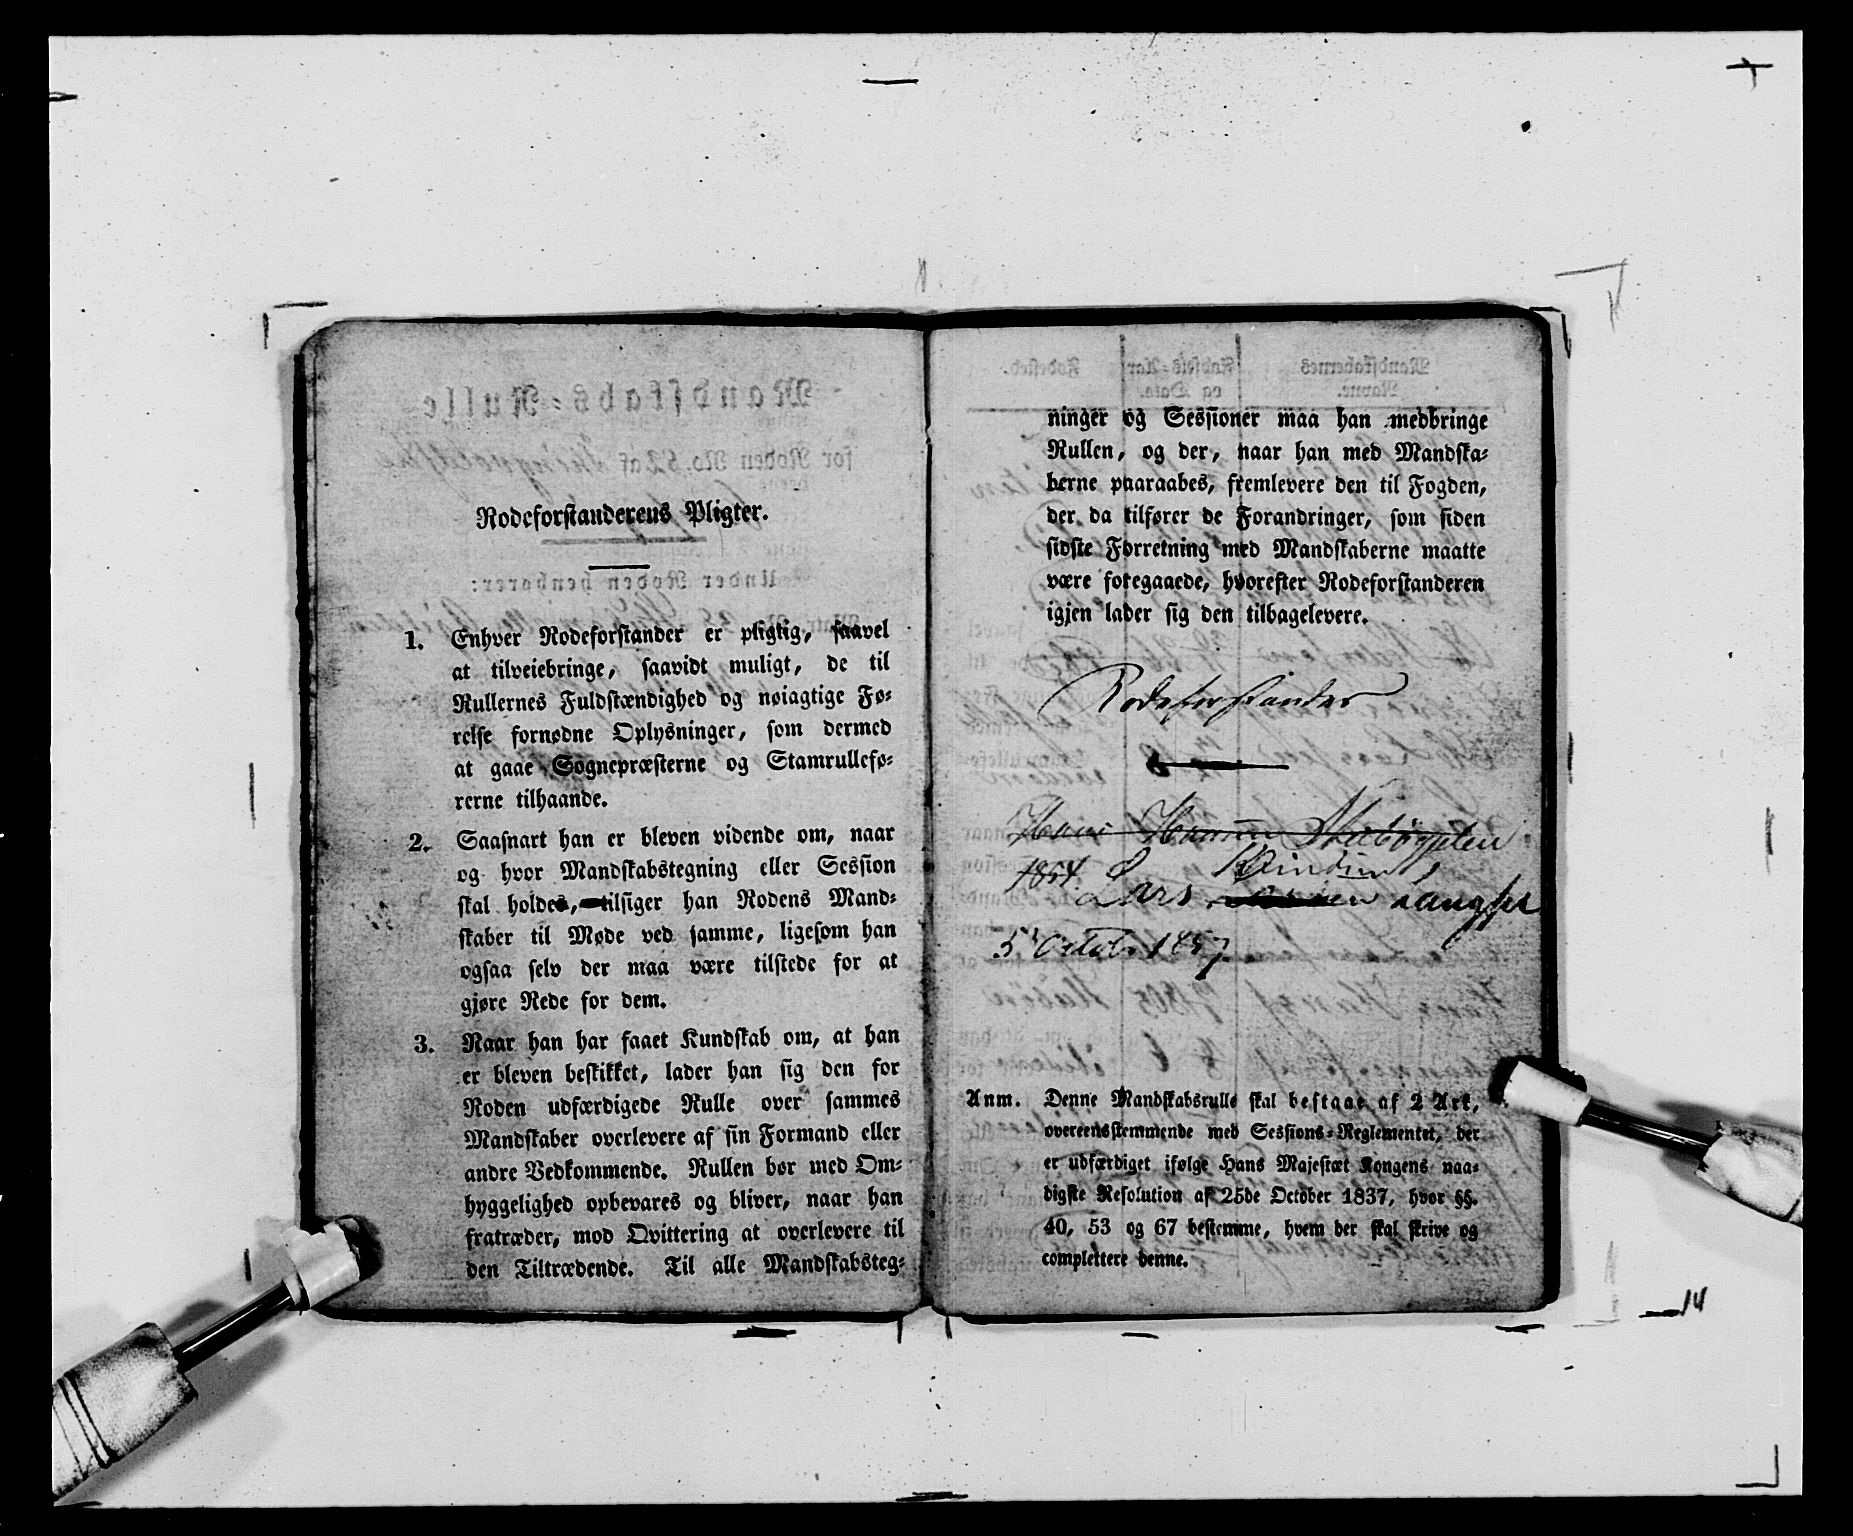 Rodeforstanderens Pligter.
1. Enhver Rodeforstander er pligtig, saavel
at tilveiebringe, saavidt muligt, de til
Rullernes Fuldstændighed og nøiagtige Fø-
relse fornødne Oplysninger, som dermed
at gaae Sognepræsterne og Stamrullefø-
rerne tilhaande.
2. Saasnart han er bleven vidende om, naar
og hvor Mandskabstegning eller Session
skal holdes, tilsiger han Rodens Mand-
skaber til Møde ved samme, ligesom han
ogsaa selv der maa være tilstede for at
gjøre Rede for dem.
3. Naar han har faaet Kundskab om, at han
er bleven beskikket, lader han sig den for
Roden udfærdigede Rulle over sammes
Mandskaber overlevere af sin Formand eller
andre Vedkommende. Rullen bør med Om-
hyggelighed opbevares og bliver, naar han
fratræder, mod Qvittering at overlevere til
den Tiltrædende. Til alle Mandskabsteg-
ninger og Sessioner maa han medbringe
Rullen, og der, naar han med Mandska-
berne paaraabes, fremlevere den til Fogden,
der da tilfører de Forandringer, som siden
sidste Forretning med Mandskaberne maatte
være foregaaede, hvorefter Rodeforstanderen
igjen lader sig den tilbagelevere.
Rodeforstander
1854. Lars
5t Octobr 1857
Anm. Denne Mandskabsrulle skal bestaae af 2 Ark,
overeensstemmende med Sessions-Reglementet, der
er udfærdiget ifølge Hans Majestæt Kongens naa-
digste Resolution af 25de October 1837, hvor §§.
40, 53 og 67 bestemme, hvem der skal skrive og
complettere denne.
14